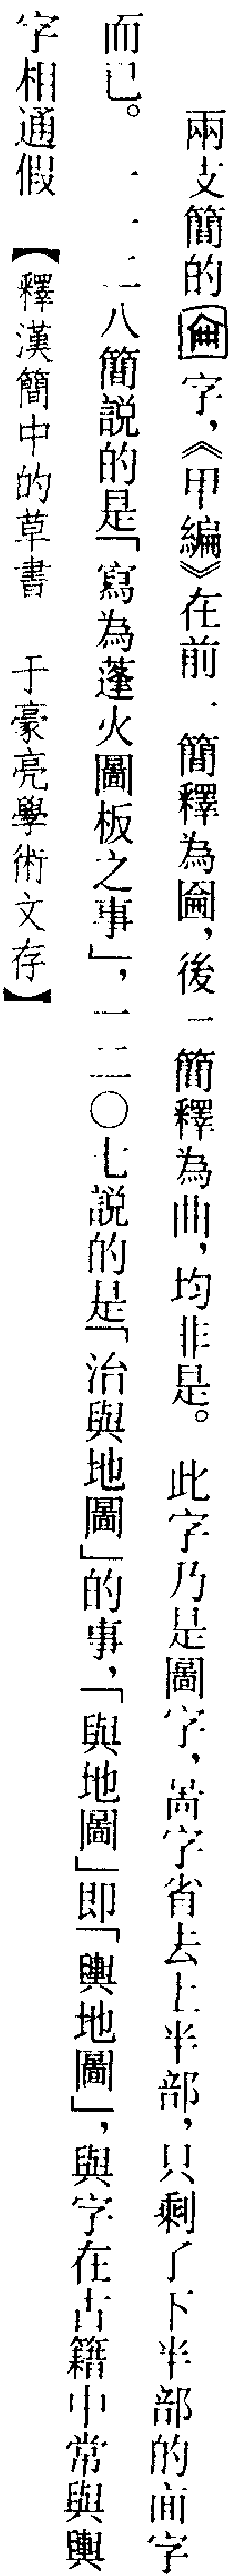 兩支簡的字，《甲編》在前一簡釋為圇，後一簡釋為曲，均非是。此字乃是圖字，啚字省去上半部，只剩了下半部的㐭字
而已。一一二八簡説的是「寫為蓬火圖板之事」，一二〇七説的是「治與地圖」的事，「與地圖」即「輿地圖」，與字在古籍中常與輿
字相通假【釋漢簡中的草書　于豪亮學術文存】